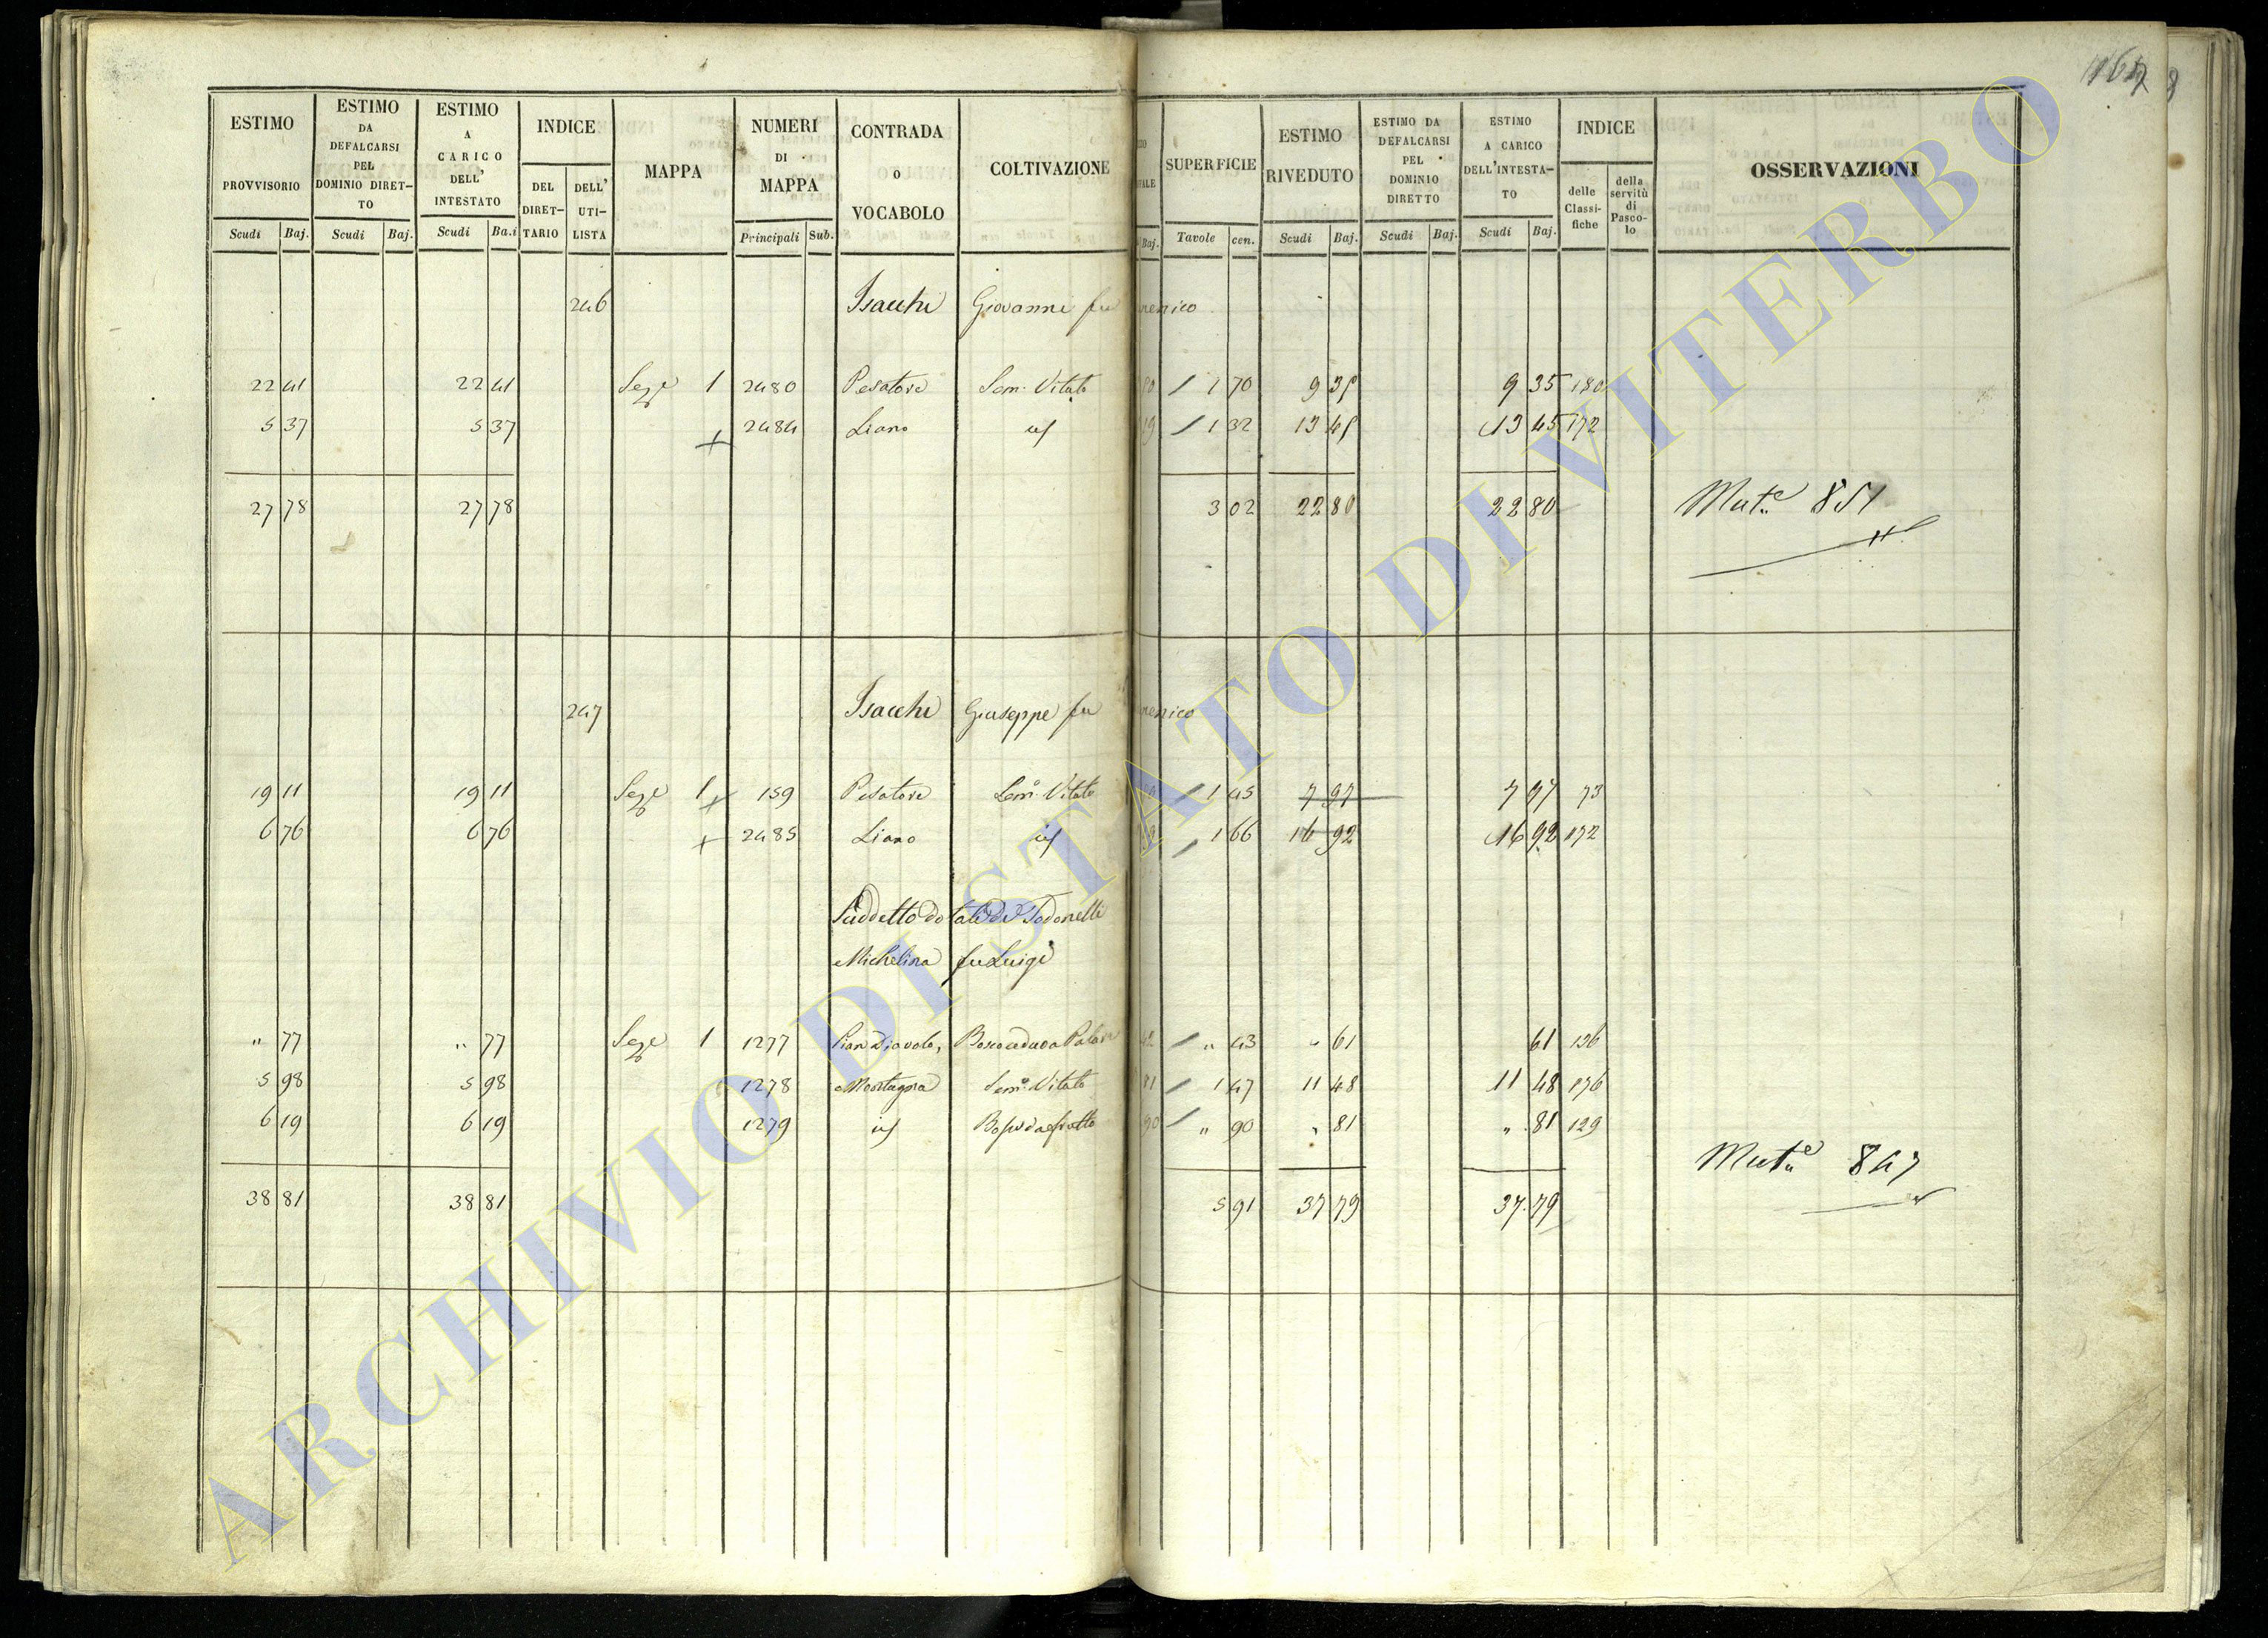 1164 8
ESTIMO PROVVISORIO | ESTIMO DA DEFALCARSI PEL DOMINIO DIRET-TO | ESTIMO A CARICO DELL' INTESTATO | INDICE | MAPPA | NUMERI DI MAPPA | CONTRADA O VOCABOLO | COLTIVAZIONE | SUPERFICIE | ESTIMO RIVEDUTO | ESTIMO DA DEFALCARSI PEL DOMINIO DIRETTO | ESTIMO A CARICO DELL'INTESTA-TO | INDICE | OSSERVAZIONI
DEL DIRET-TARIO | DELL' UTI-LISTA | delle Classi-fiche | della servitù di Pasco-lo
Scudi | Baj. | Scudi | Baj. | Scudi | Ba.i | Principali | Sub. | Baj. | Tavole | cen. | Scudi | Baj. | Scudi | Baj. | Scudi | Baj.
246 Isacchi Giovanni fu enico
22 41 | 22 41 | Sezze 1 | 2480 | Pesatore | Sem. Vitato | 1 70 | 9 35 | 9 35 | 180
5 37 | 5 37 | 2484 | Liano | id | 19 | 1 32 | 13 45 | 13 45 | 172
27 78 | 27 78 | 3 02 | 22 80 | 22 80 | Mut.e 851
247 Isacchi Giuseppe fu enico
19 11 | 19 11 | Sezze 1 | 159 | Pesatore | Sem. Vitato | 1 45 | 7 97 | 7 97 | 73
6 76 | 6 76 | 2485 | Liano | id | 1 66 | 16 92 | 16 92 | 172
Suddetto dotali di Todonelli
Michelina fu Luigi
" 77 | " 77 | Sezze 1 | 1277 | Pian Diavolo, | Bosco ceduo a Palare | 42 | " 43 | " 61 | 61 | 136
5 98 | 5 98 | 1278 | Montagna | Sem. Vitato | 81 | 1 47 | 11 48 | 11 48 | 176
6 19 | 6 19 | 1279 | id | Bosco da frutto | 90 | " 90 | " 81 | " 81 | 129
Mut.e 847
38 81 | 38 81 | 5 91 | 37 79 | 37.79
ARCHIVIO DI STATO DI VITERBO